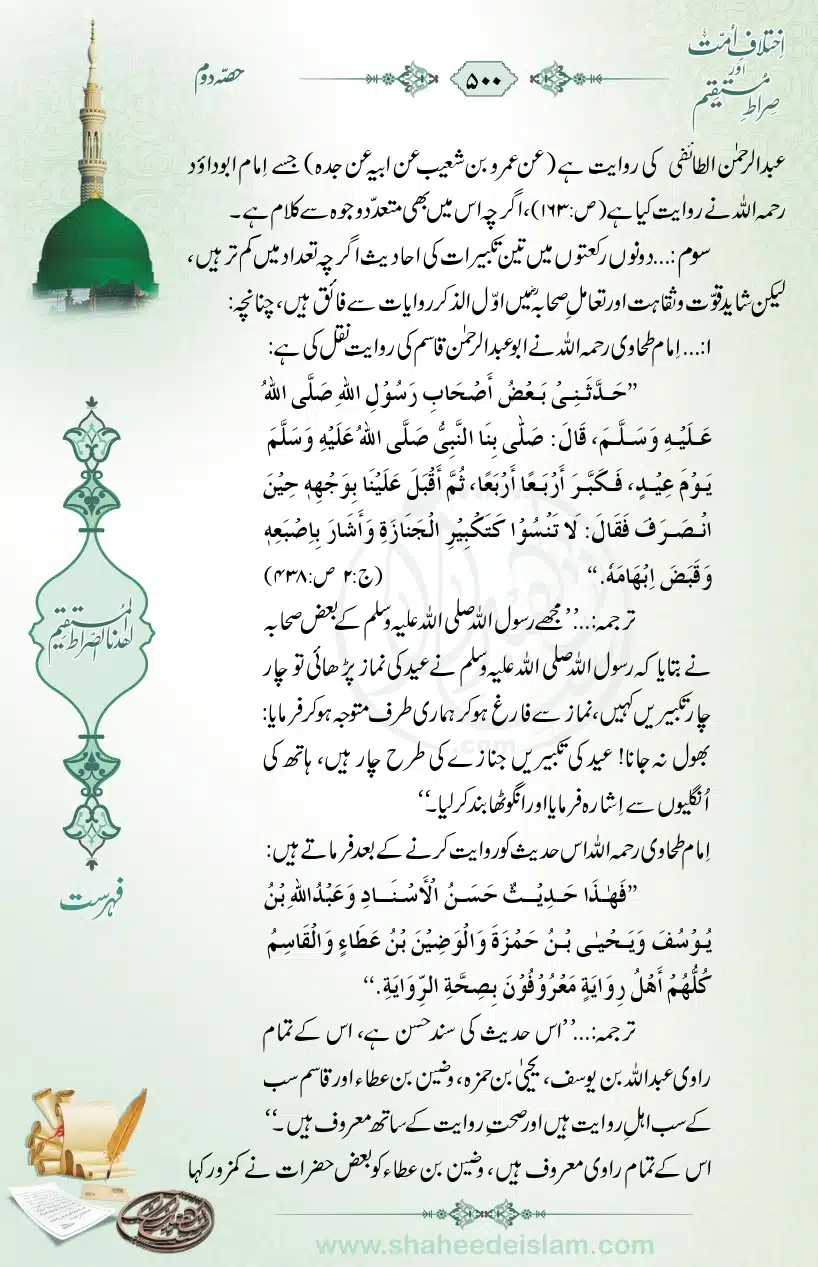 اِختلافِ اُمّت
اور
صِراطِ مُستقیم
۵۰۰
حصّہ دوم
عبدالرحمٰن الطائفی کی روایت ہے (عن عمرو بن شعیب عن ابیہ عن جدہ) جسے اِمام ابوداؤد
رحمہ اللہ نے روایت کیا ہے (ص:۱۶۳)، اگرچہ اس میں بھی متعدّد وجوہ سے کلام ہے۔
سوم:... دونوں رکعتوں میں تین تکبیرات کی احادیث اگرچہ تعداد میں کم تر ہیں،
لیکن شاید قوّت وثقاہت اور تعاملِ صحابہؓ میں اوّل الذکر روایات سے فائق ہیں، چنانچہ:
۱:... اِمام طحاوی رحمہ اللہ نے ابوعبدالرحمٰن قاسم کی روایت نقل کی ہے:
”حَدَّثَنِیْ بَعْضُ أَصْحَابِ رَسُوْلِ اللهِ صَلَّی اللهُ
عَلَیْهِ وَسَلَّمَ، قَالَ: صَلّٰی بِنَا النَّبِیُّ صَلَّی اللهُ عَلَیْهِ وَسَلَّمَ
یَوْمَ عِیْدٍ، فَکَبَّرَ أَرْبَعًا أَرْبَعًا، ثُمَّ أَقْبَلَ عَلَیْنَا بِوَجْهِهٖ حِیْنَ
انْصَرَفَ فَقَالَ: لَا تَنْسُوْا کَتَکْبِیْرِ الْجَنَازَةِ وَأَشَارَ بِاِصْبَعِهٖ
وَقَبَضَ اِبْهَامَهٗ.“ (ج:۲ ص:۴۳۸)
ترجمہ:...”مجھے رسول اللہ صلی اللہ علیہ وسلم کے بعض صحابہ
نے بتایا کہ رسول اللہ صلی اللہ علیہ وسلم نے عید کی نماز پڑھائی تو چار
چار تکبیریں کہیں، نماز سے فارغ ہوکر ہماری طرف متوجہ ہوکر فرمایا:
بھول نہ جانا! عید کی تکبیریں جنازے کی طرح چار ہیں، ہاتھ کی
اُنگلیوں سے اِشارہ فرمایا اور انگوٹھا بند کرلیا۔“
اِمام طحاوی رحمہ اللہ اس حدیث کو روایت کرنے کے بعد فرماتے ہیں:
”فَهٰذَا حَدِیْثٌ حَسَنُ الْأَسْنَادِ وَعَبْدُاللهِ بْنُ
یُوْسُفَ وَیَحْیٰی بْنُ حَمْزَةَ وَالْوَضِیْنَ بْنُ عَطَاءٍ وَالْقَاسِمُ
کُلُّهُمْ أَهْلُ رِوَایَةٍ مَعْرُوْفُوْنَ بِصِحَّةِ الرِّوَایَةِ.“
ترجمہ:...”اس حدیث کی سند حسن ہے، اس کے تمام
راوی عبداللہ بن یوسف، یحییٰ بن حمزہ، وضین بن عطاء اور قاسم سب
کے سب اہلِ روایت ہیں اور صحتِ روایت کے ساتھ معروف ہیں۔“
اس کے تمام راوی معروف ہیں، وضین بن عطاء کو بعض حضرات نے کمزور کہا
اهدنا الصراط المستقیم
فہرست
www.shaheedeislam.com